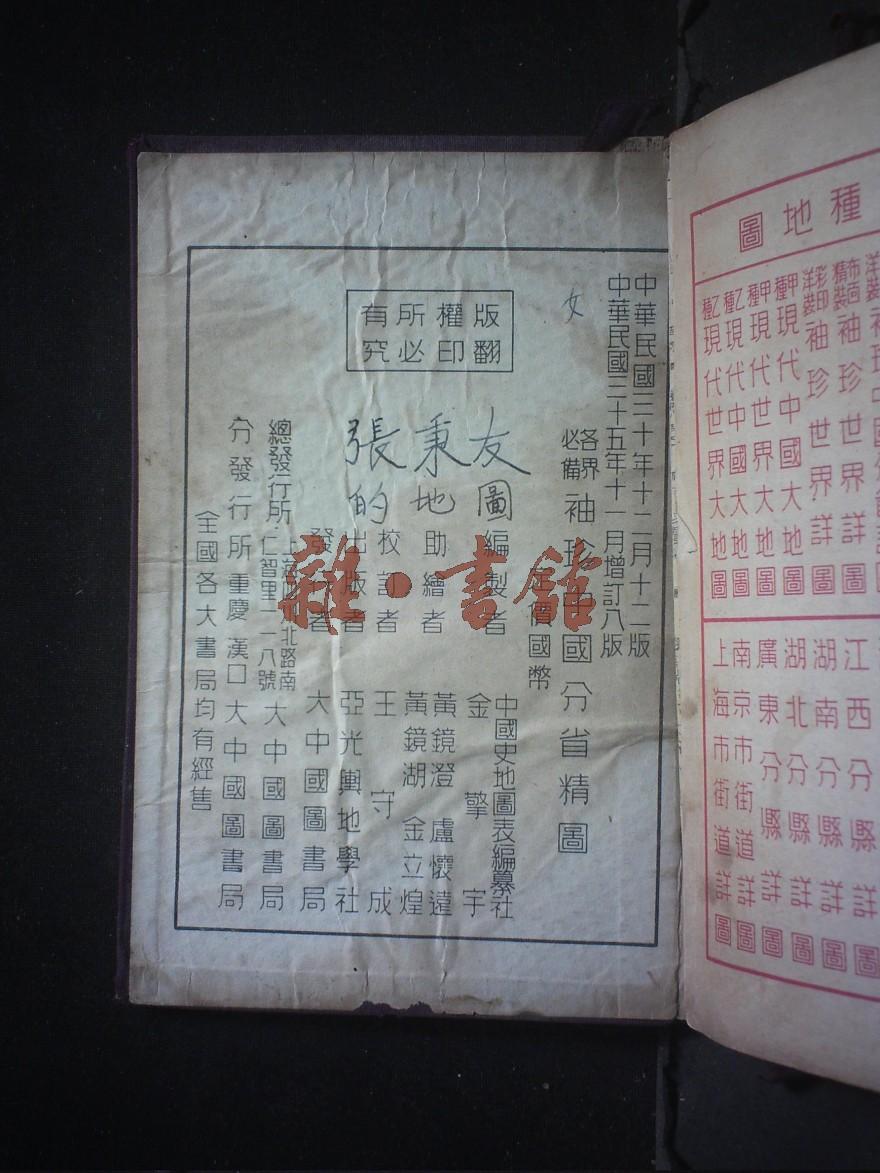 中華民國三十年十二月十二版
中華民國三十五年十一月增訂八版
各界必備 袖珍中國分省精圖
定價國幣
版權所有
翻印必究
女
張秉友
的地圖
編製者 中國史地圖表編纂社
金擎宇
助繪者 黃鏡澄 盧懷遠
黃鏡湖 金立煌
校訂者 王守成
出版者 亞光輿地學社
發行者 大中國圖書局
總發行所 上海 北路南仁智里 八號 大中國圖書局
分發行所 重慶 漢口 大中國圖書局
全國各大書局均有經售
雜·書館
種地圖
洋裝
布面精裝 袖珍世界詳圖
彩印洋裝 袖珍世界詳圖
甲種 現代中國大地圖
甲種 現代世界大地圖
乙種 現代中國大地圖
乙種 現代世界大地圖
江西分縣詳圖
湖南分縣詳圖
湖北分縣詳圖
廣東分縣詳圖
南京市街道詳圖
上海市街道詳圖